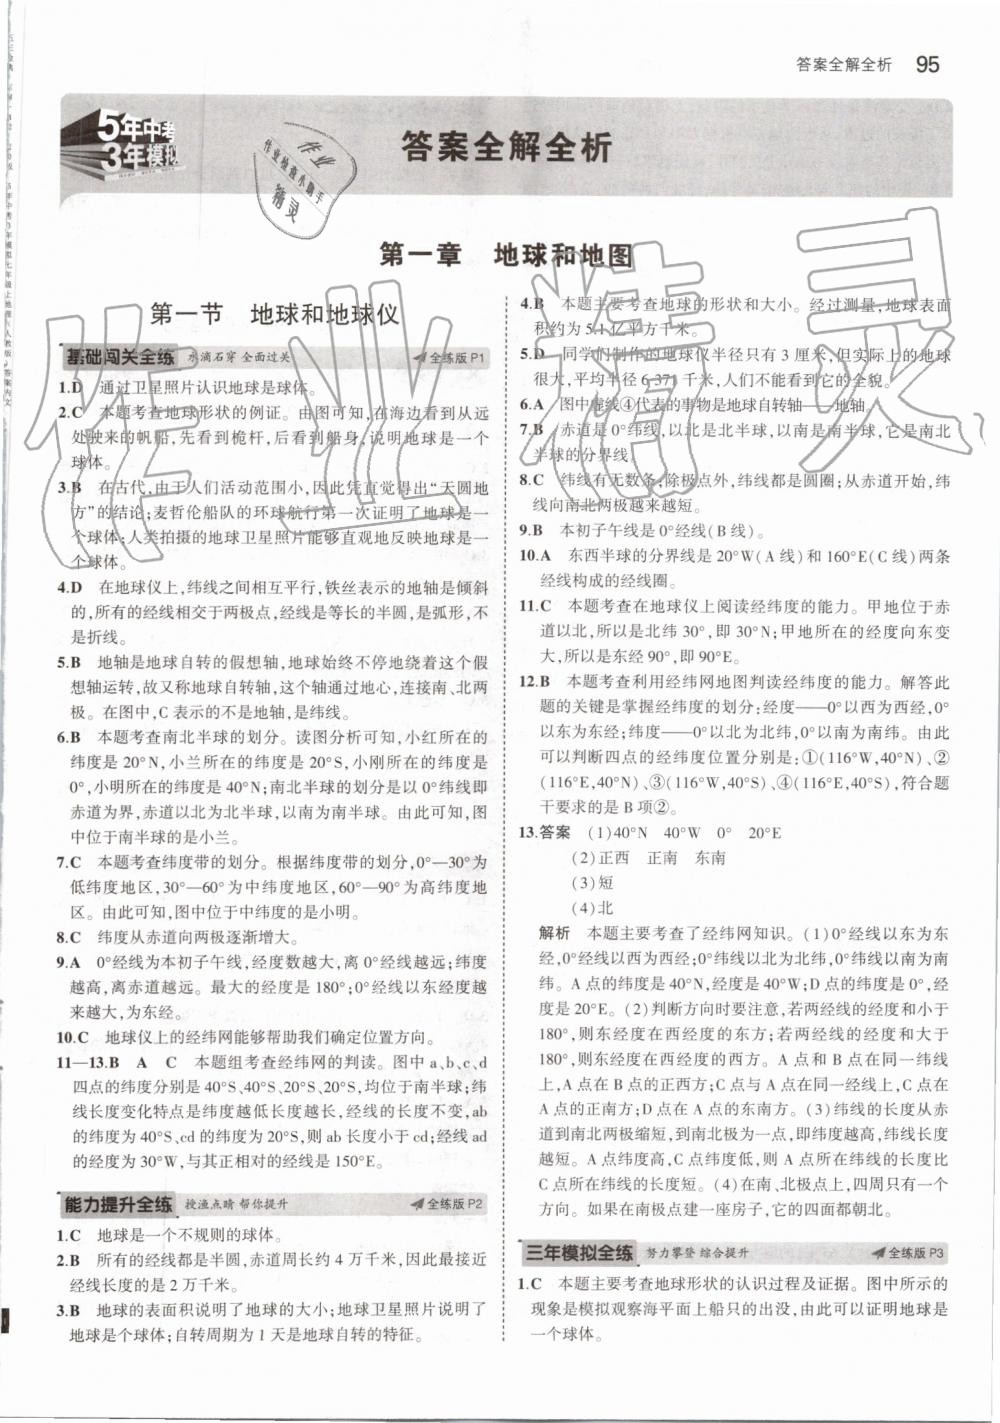 答案全解全析 95
5年中考
3年模拟
答案全解全析
作业
作业检查小助手
精灵
第一章 地球和地图
第一节 地球和地球仪
基础闯关全练 水滴石穿 全面过关 全练版P1
1.D 通过卫星照片认识地球是球体。
2.C 本题考查地球形状的例证。由图可知,在海边看到从远
处驶来的帆船,先看到桅杆,后看到船身,说明地球是一个
球体。
3.B 在古代,由于人们活动范围小,因此凭直觉得出“天圆地
方”的结论;麦哲伦船队的环球航行第一次证明了地球是一
个球体;人类拍摄的地球卫星照片能够直观地反映地球是一
个球体。
4.D 在地球仪上,纬线之间相互平行,铁丝表示的地轴是倾斜
的,所有的经线相交于两极点,经线是等长的半圆,是弧形,不
是折线。
5.B 地轴是地球自转的假想轴,地球始终不停地绕着这个假
想轴运转,故又称地球自转轴,这个轴通过地心,连接南、北两
极。在图中,C表示的不是地轴,是纬线。
6.B 本题考查南北半球的划分。读图分析可知,小红所在的
纬度是20°N,小兰所在的纬度是20°S,小刚所在的纬度是
0°,小明所在的纬度是40°N;南北半球的划分是以0°纬线即
赤道为界,赤道以北为北半球,以南为南半球。由此可知,图
中位于南半球的是小兰。
7.C 本题考查纬度带的划分。根据纬度带的划分,0°—30°为
低纬度地区,30°—60°为中纬度地区,60°—90°为高纬度地
区。由此可知,图中位于中纬度的是小明。
8.C 纬度从赤道向两极逐渐增大。
9.A 0°经线为本初子午线,经度数越大,离0°经线越远;纬度
越高,离赤道越远。最大的经度是180°;0°经线以东经度越
来越大,为东经。
10.C 地球仪上的经纬网能够帮助我们确定位置方向。
11—13.B A C 本题组考查经纬网的判读。图中a、b、c、d
四点的纬度分别是40°S、40°S、20°S、20°S,均位于南半球;纬
线长度变化特点是纬度越低长度越长,经线的长度不变,ab
的纬度为40°S、cd的纬度为20°S,则ab长度小于cd;经线ad
的经度为30°W,与其正相对的经线是150°E。
能力提升全练 授渔点睛 帮你提升 全练版P2
1.C 地球是一个不规则的球体。
2.B 所有的经线都是半圆,赤道周长约4万千米,因此最接近
经线长度的是2万千米。
3.B 地球的表面积说明了地球的大小;地球卫星照片说明了
地球是个球体;自转周期为1天是地球自转的特征。
4.B 本题主要考查地球的形状和大小。经过测量,地球表面
积约为5.1亿平方千米。
5.D 同学们制作的地球仪半径只有3厘米,但实际上的地球
很大,平均半径6 371千米,人们不能看到它的全貌。
6.A 图中虚线④代表的事物是地球自转轴——地轴。
7.B 赤道是0°纬线,以北是北半球,以南是南半球,它是南北
半球的分界线。
8.C 纬线有无数条;除极点外,纬线都是圆圈;从赤道开始,纬
线向南北两极越来越短。
9.B 本初子午线是0°经线(B线)。
10.A 东西半球的分界线是20°W(A线)和160°E(C线)两条
经线构成的经线圈。
11.C 本题考查在地球仪上阅读经纬度的能力。甲地位于赤
道以北,所以是北纬30°,即30°N;甲地所在的经度向东变
大,所以是东经90°,即90°E。
12.B 本题考查利用经纬网地图判读经纬度的能力。解答此
题的关键是掌握经纬度的划分:经度——0°以西为西经,0°
以东为东经;纬度——0°以北为北纬,0°以南为南纬。由此
可以判断四点的经纬度位置分别是:①(116°W,40°N)、②
(116°E,40°N)、③(116°W,40°S)、④(116°E,40°S),符合题
干要求的是B项②。
13.答案 (1)40°N 40°W 0° 20°E
(2)正西 正南 东南
(3)短
(4)北
解析 本题主要考查了经纬网知识。(1)0°经线以东为东
经,0°经线以西为西经;0°纬线以北为北纬,0°纬线以南为南
纬。A点的纬度是40°N,经度是40°W;D点的纬度是0°,经
度是20°E。(2)判断方向时要注意,若两经线的经度和小于
180°,则东经度在西经度的东方;若两经线的经度和大于
180°,则东经度在西经度的西方。A点和B点在同一纬线
上,A点在B点的正西方;C点与A点在同一经线上,C点在
A点的正南方;D点在A点的东南方。(3)纬线的长度从赤
道到南北两极缩短,到南北极为一点,即纬度越高,纬线长度
越短。A点纬度高,C点纬度低,则A点所在纬线的长度比
C点所在纬线长度短。(4)在南、北极点上,四周只有一个
方向。如果在南极点建一座房子,它的四面都朝北。
三年模拟全练 努力攀登 综合提升 全练版P3
1.C 本题主要考查地球形状的认识过程及证据。图中所示的
现象是模拟观察海平面上船只的出没,由此可以证明地球是
一个球体。
作业精灵